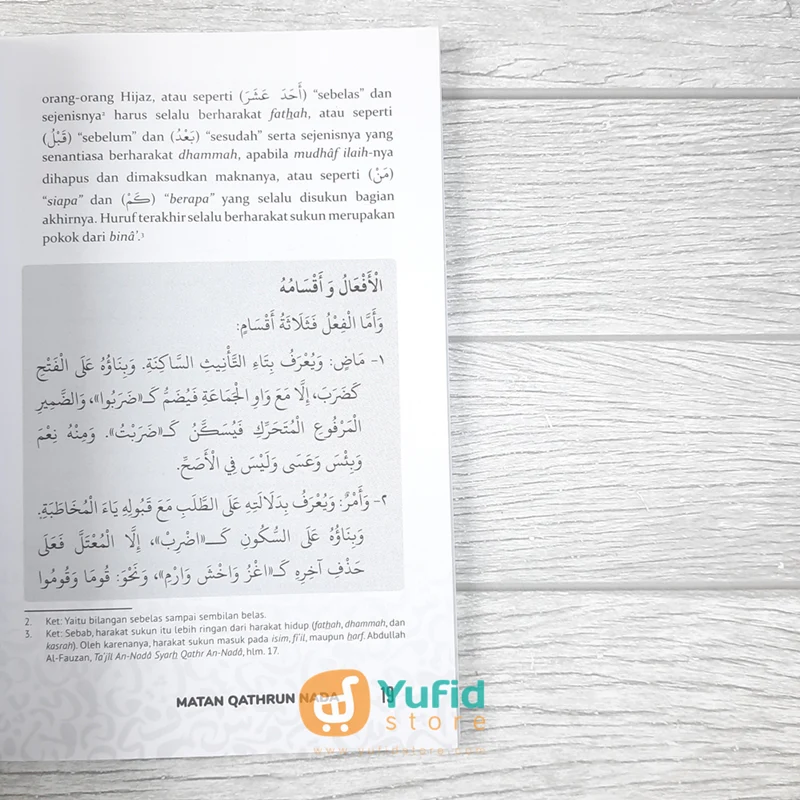 orang-orang Hijaz, atau seperti (أَحَدَ عَشَرَ) “sebelas” dan
sejenisnya² harus selalu berharakat fatẖah, atau seperti
(قَبْلُ) “sebelum” dan (بَعْدُ) “sesudah” serta sejenisnya yang
senantiasa berharakat dhammah, apabila mudhâf ilaih-nya
dihapus dan dimaksudkan maknanya, atau seperti (مَنْ)
“siapa” dan (كَمْ) “berapa” yang selalu disukun bagian
akhirnya. Huruf terakhir selalu berharakat sukun merupakan
pokok dari binâ’.³
الْأَفْعَالُ وَ أَقْسَامُهُ
وَأَمَّا الْفِعْلُ فَثَلَاثَةُ أَقْسَامٍ:
١- مَاضٍ: وَيُعْرَفُ بِتَاءِ التَّأْنِيثِ السَّاكِنَةِ. وَبِنَاؤُهُ عَلَى الْفَتْحِ
كَضَرَبَ، إِلَّا مَعَ وَاوِ الْجَمَاعَةِ فَيُضَمُّ كَـ«ضَرَبُوا»، وَالضَّمِيرِ
الْمَرْفُوعِ الْمُتَحَرِّكِ فَيُسَكَّنُ كَـ«ضَرَبْتُ». وَمِنْهُ نِعْمَ
وَبِئْسَ وَعَسَى وَلَيْسَ فِي الْأَصَحِّ.
٢- وَأَمْرٌ: وَيُعْرَفُ بِدَلَالَتِهِ عَلَى الطَّلَبِ مَعَ قَبُولِهِ يَاءَ الْمُخَاطَبَةِ.
وَبِنَاؤُهُ عَلَى السُّكُونِ كَـ«اضْرِبْ»، إِلَّا الْمُعْتَلَّ فَعَلَى
حَذْفِ آخِرِهِ كَـ«اغْزُ وَاخْشَ وَارْمِ»، وَنَحْوَ: قُومَا وَقُومُوا
2. Ket: Yaitu bilangan sebelas sampai sembilan belas.
3. Ket: Sebab, harakat sukun itu lebih ringan dari harakat hidup (fatẖah, dhammah, dan
kasrah). Oleh karenanya, harakat sukun masuk pada isim, fi’il, maupun ẖarf. Abdullah
Al-Fauzan, Ta’jîl An-Nadâ Syarẖ Qathr An-Nadâ, hlm. 17.
MATAN QATHRUN NADA 19
Yufid
store